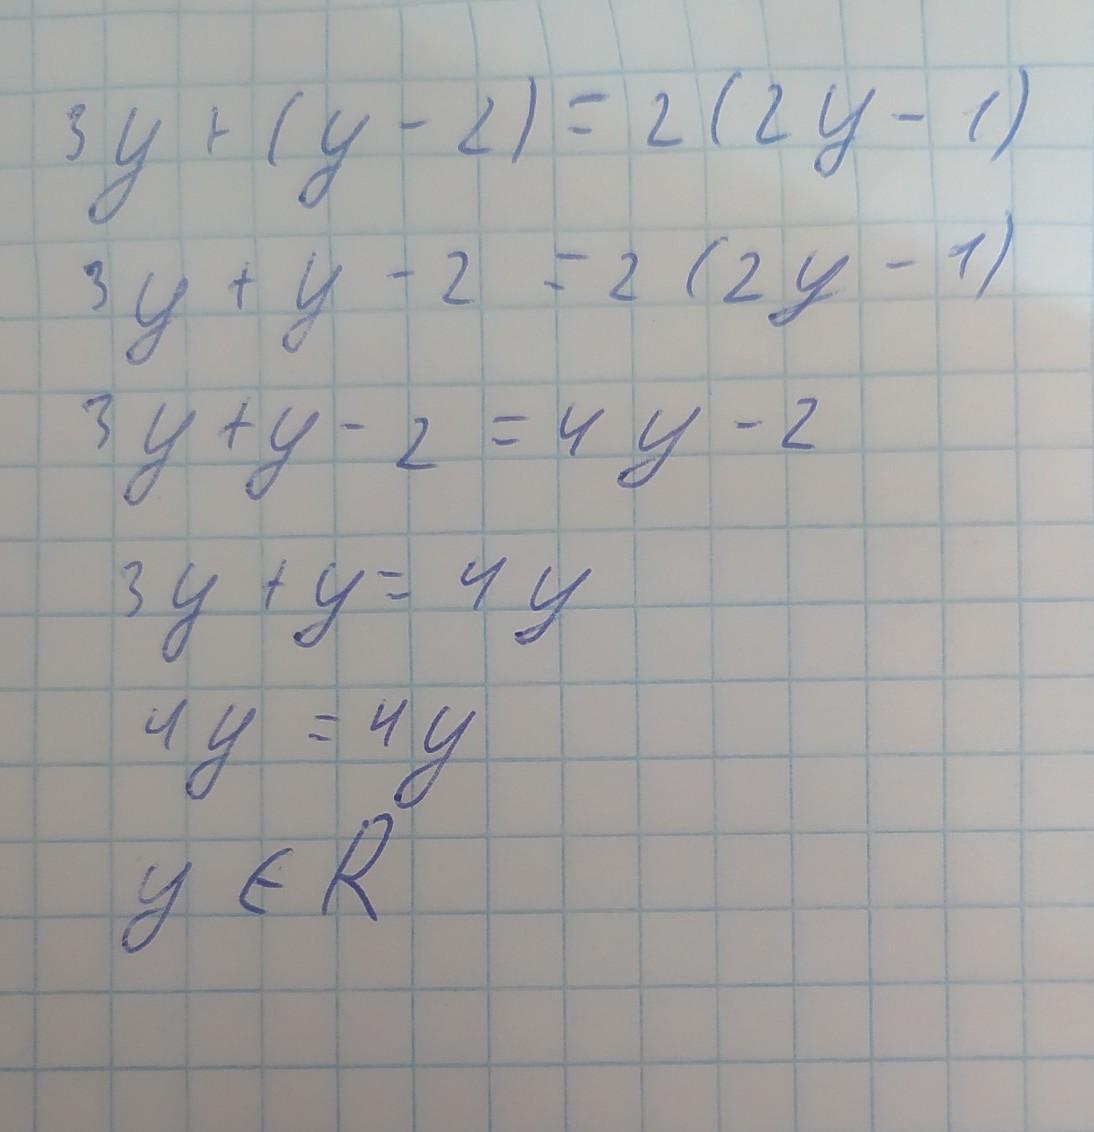 3y + (y - 2) = 2 (2y - 1)
3y + y - 2 = 2 (2y - 1)
3y + y - 2 = 4y - 2
3y + y = 4y
4y = 4y
y ∈ R